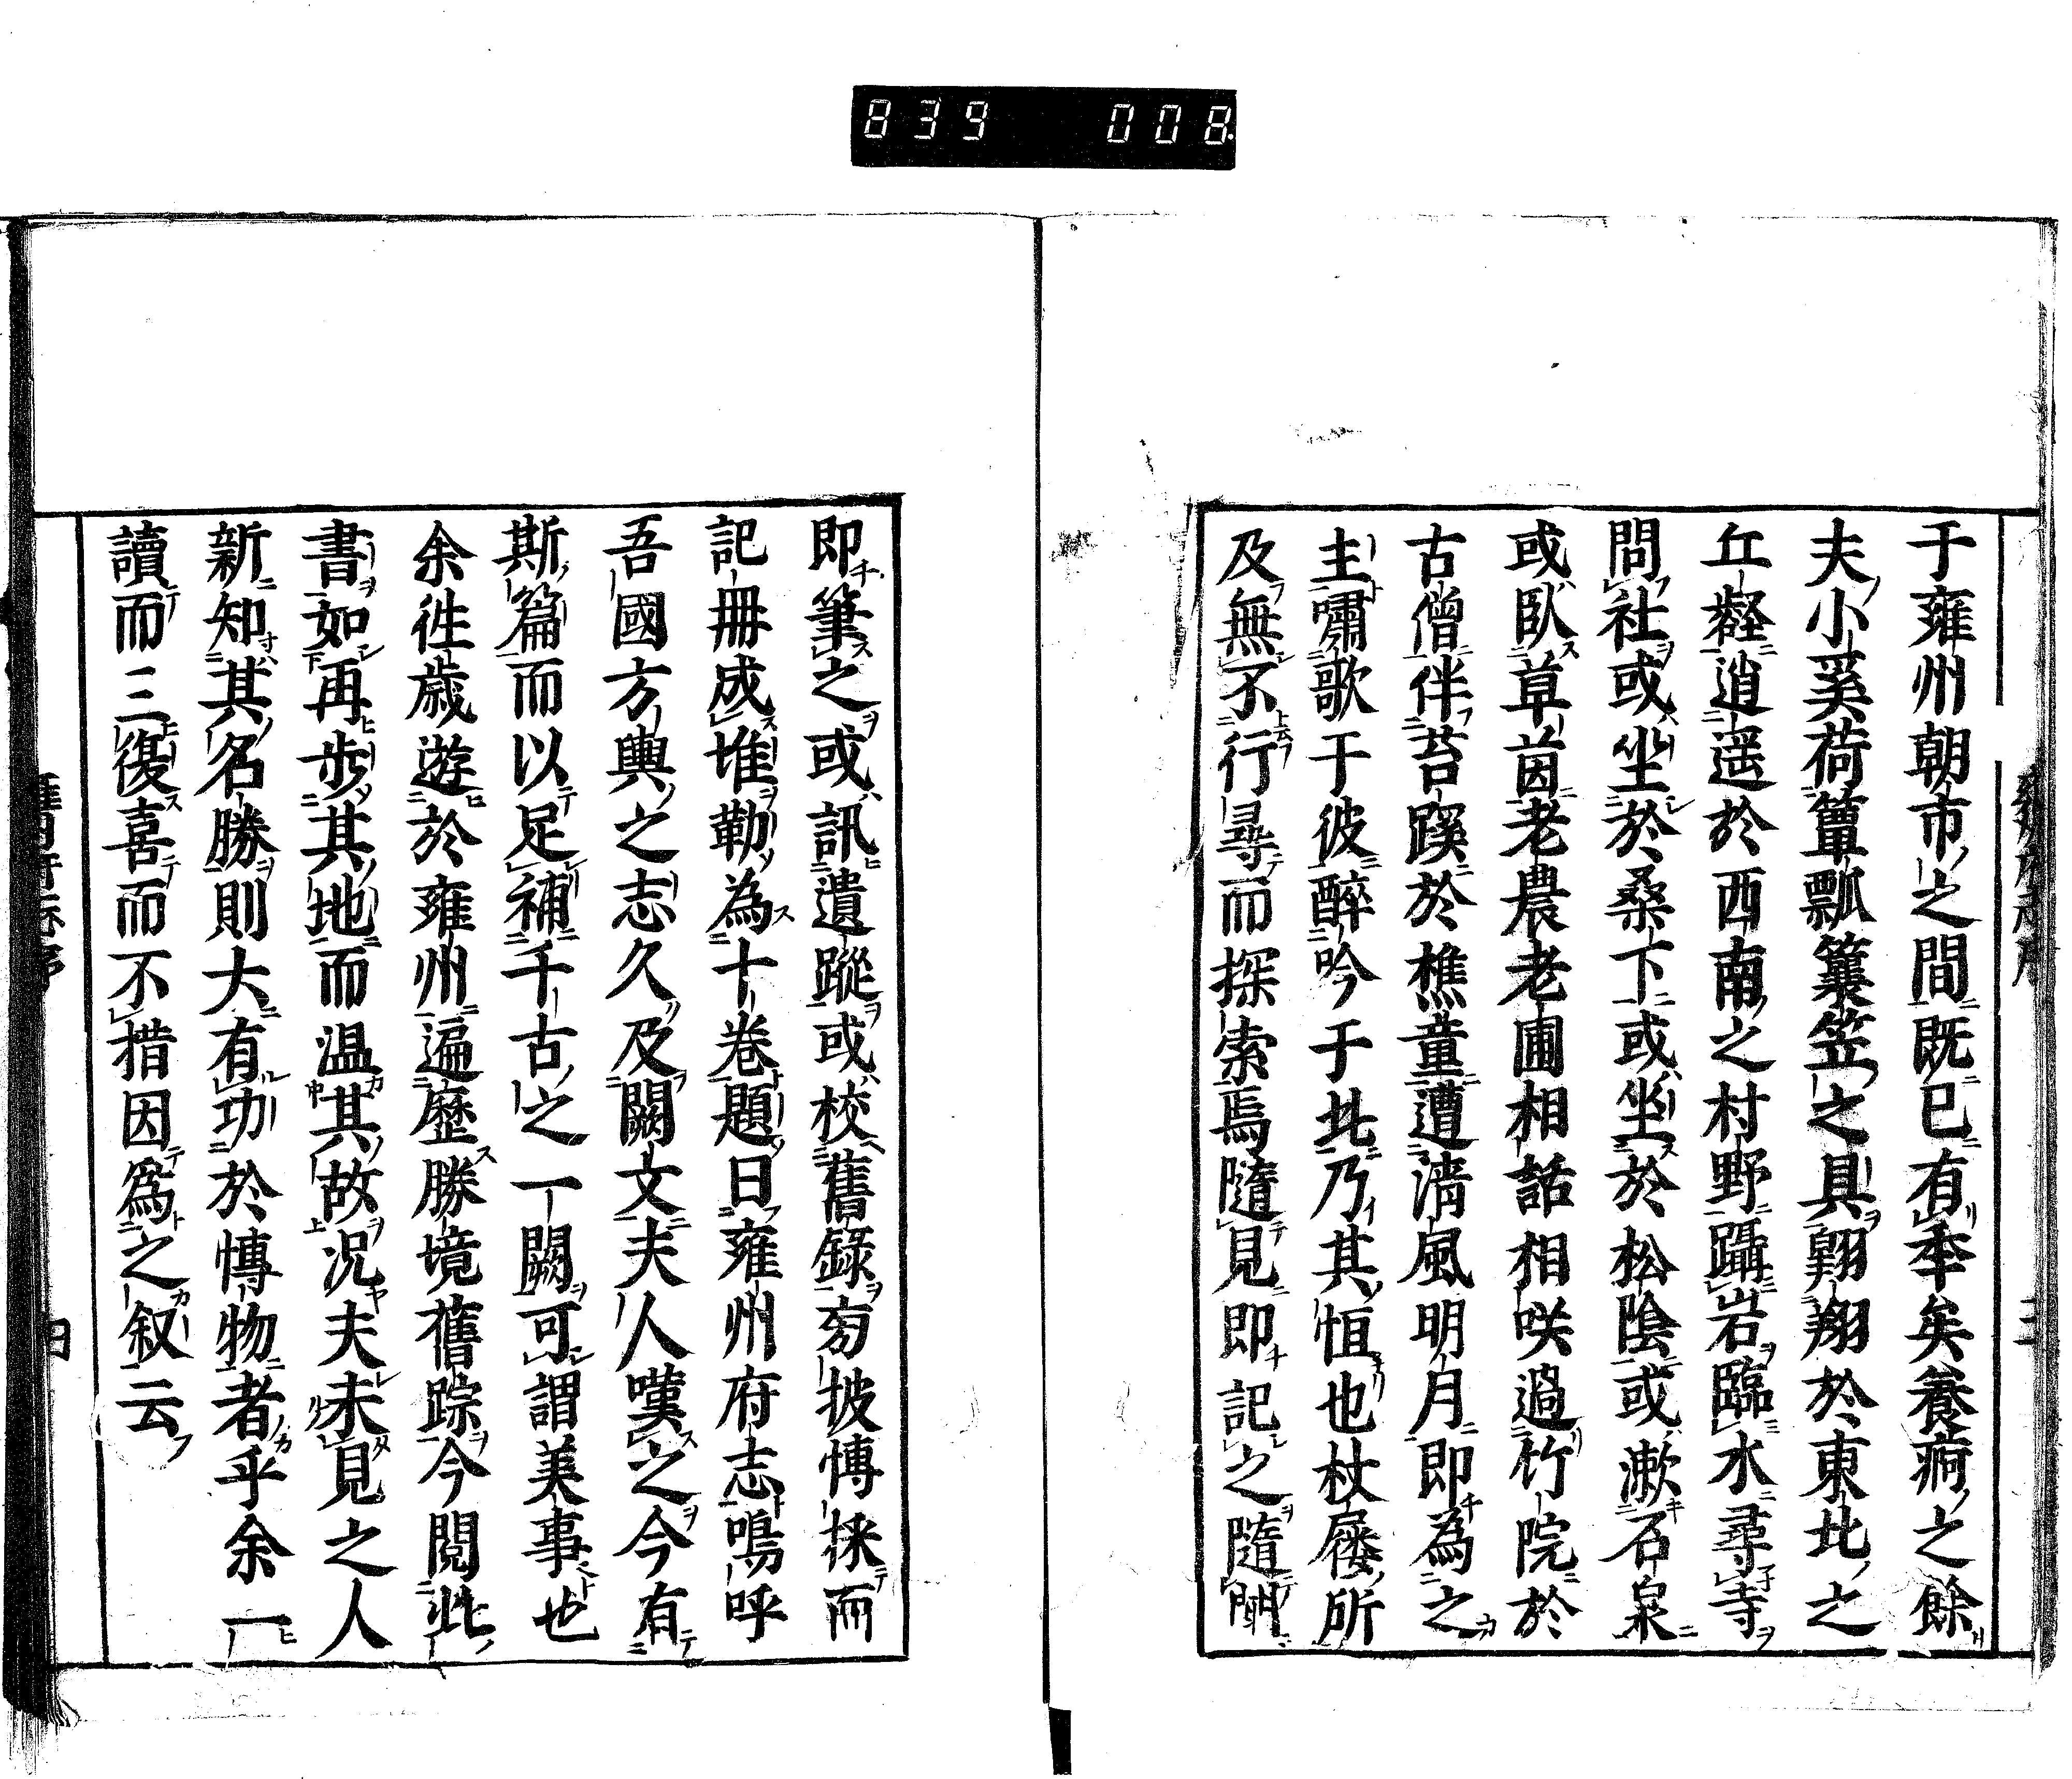 839 008
于雍州朝市之間既已有季矣養痾之餘
夫小奚荷簞瓢簑笠之具翱翔於東北之
丘壑逍遥於西南之村野躡岩臨水尋寺
問社或坐於桑下或坐於松陰或漱石泉
或臥草茵老農老圃相話相咲過竹院於
古僧伴苔蹊於樵童遭淸風明月即為之
主嘯歌于彼醉吟于此乃其恒也杖屦所
及無不行尋而探索焉隨見即記之隨聞
即筆之或訊遺蹤或校舊錄旁披博採而
記冊成堆勒為十卷題曰雍州府志嗚呼
吾國方輿之志久及闕文夫人嘆之今有
斯篇而以足補千古之一闕可謂美事也
余徃歲遊於雍州遍歷勝境舊踪今閲此
書如再步其地而温其故况夫未見之人
新知其名勝則大有功於博物者乎余一
讀而三復喜而不措因爲之叙云